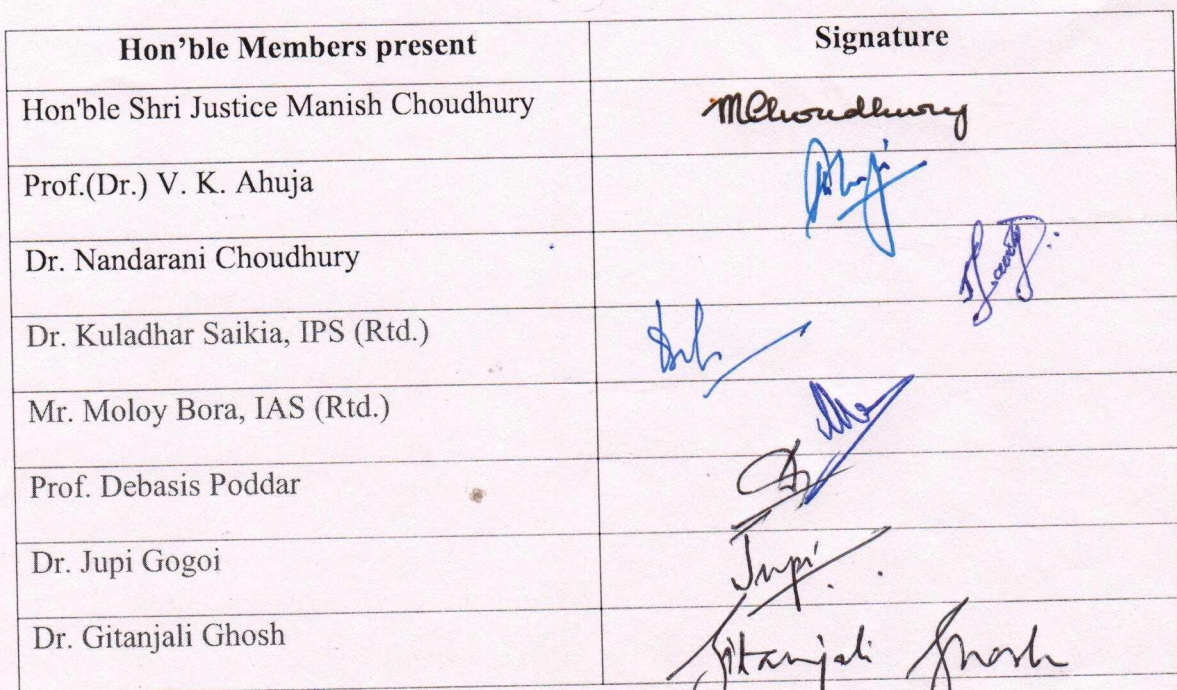 Hon’ble Members present Signature
Hon'ble Shri Justice Manish Choudhury MChoudhury
Prof.(Dr.) V. K. Ahuja
Dr. Nandarani Choudhury
Dr. Kuladhar Saikia, IPS (Rtd.)
Mr. Moloy Bora, IAS (Rtd.)
Prof. Debasis Poddar
Dr. Jupi Gogoi Jupi
Dr. Gitanjali Ghosh Gitanjali Ghosh